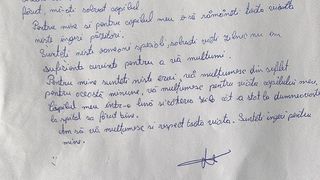 făcut, mi-ați salvat copilul
Pentru mine și pentru copilul meu o să rămâneți toată viața
niște îngeri păzitori.
Sunteți niște oameni speciali, salvați vieți zilnic nu am
suficiente cuvinte pentru a vă mulțumi.
Pentru mine sunteți niște eroi, vă mulțumesc din suflet
pentru această minune, vă mulțumesc pentru viața copilului meu,
Copilul meu într-o lună și câteva zile cât a stat la dumneavoastră
la spital s-a făcut bine.
Am să vă mulțumesc și respect toată viața. Sunteți îngeri pentru
mine.